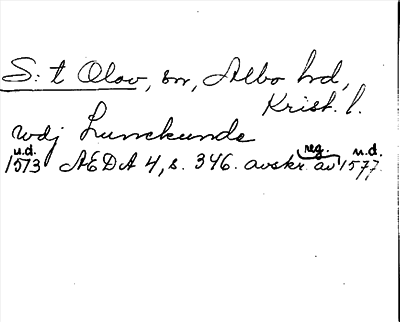 S:t Olov, sn, Albo hd,
Krist. l.
wdj Lunckunde
u.d. reg. u.d.
1573 AEDA 4, s. 346. avskr. av 1577.